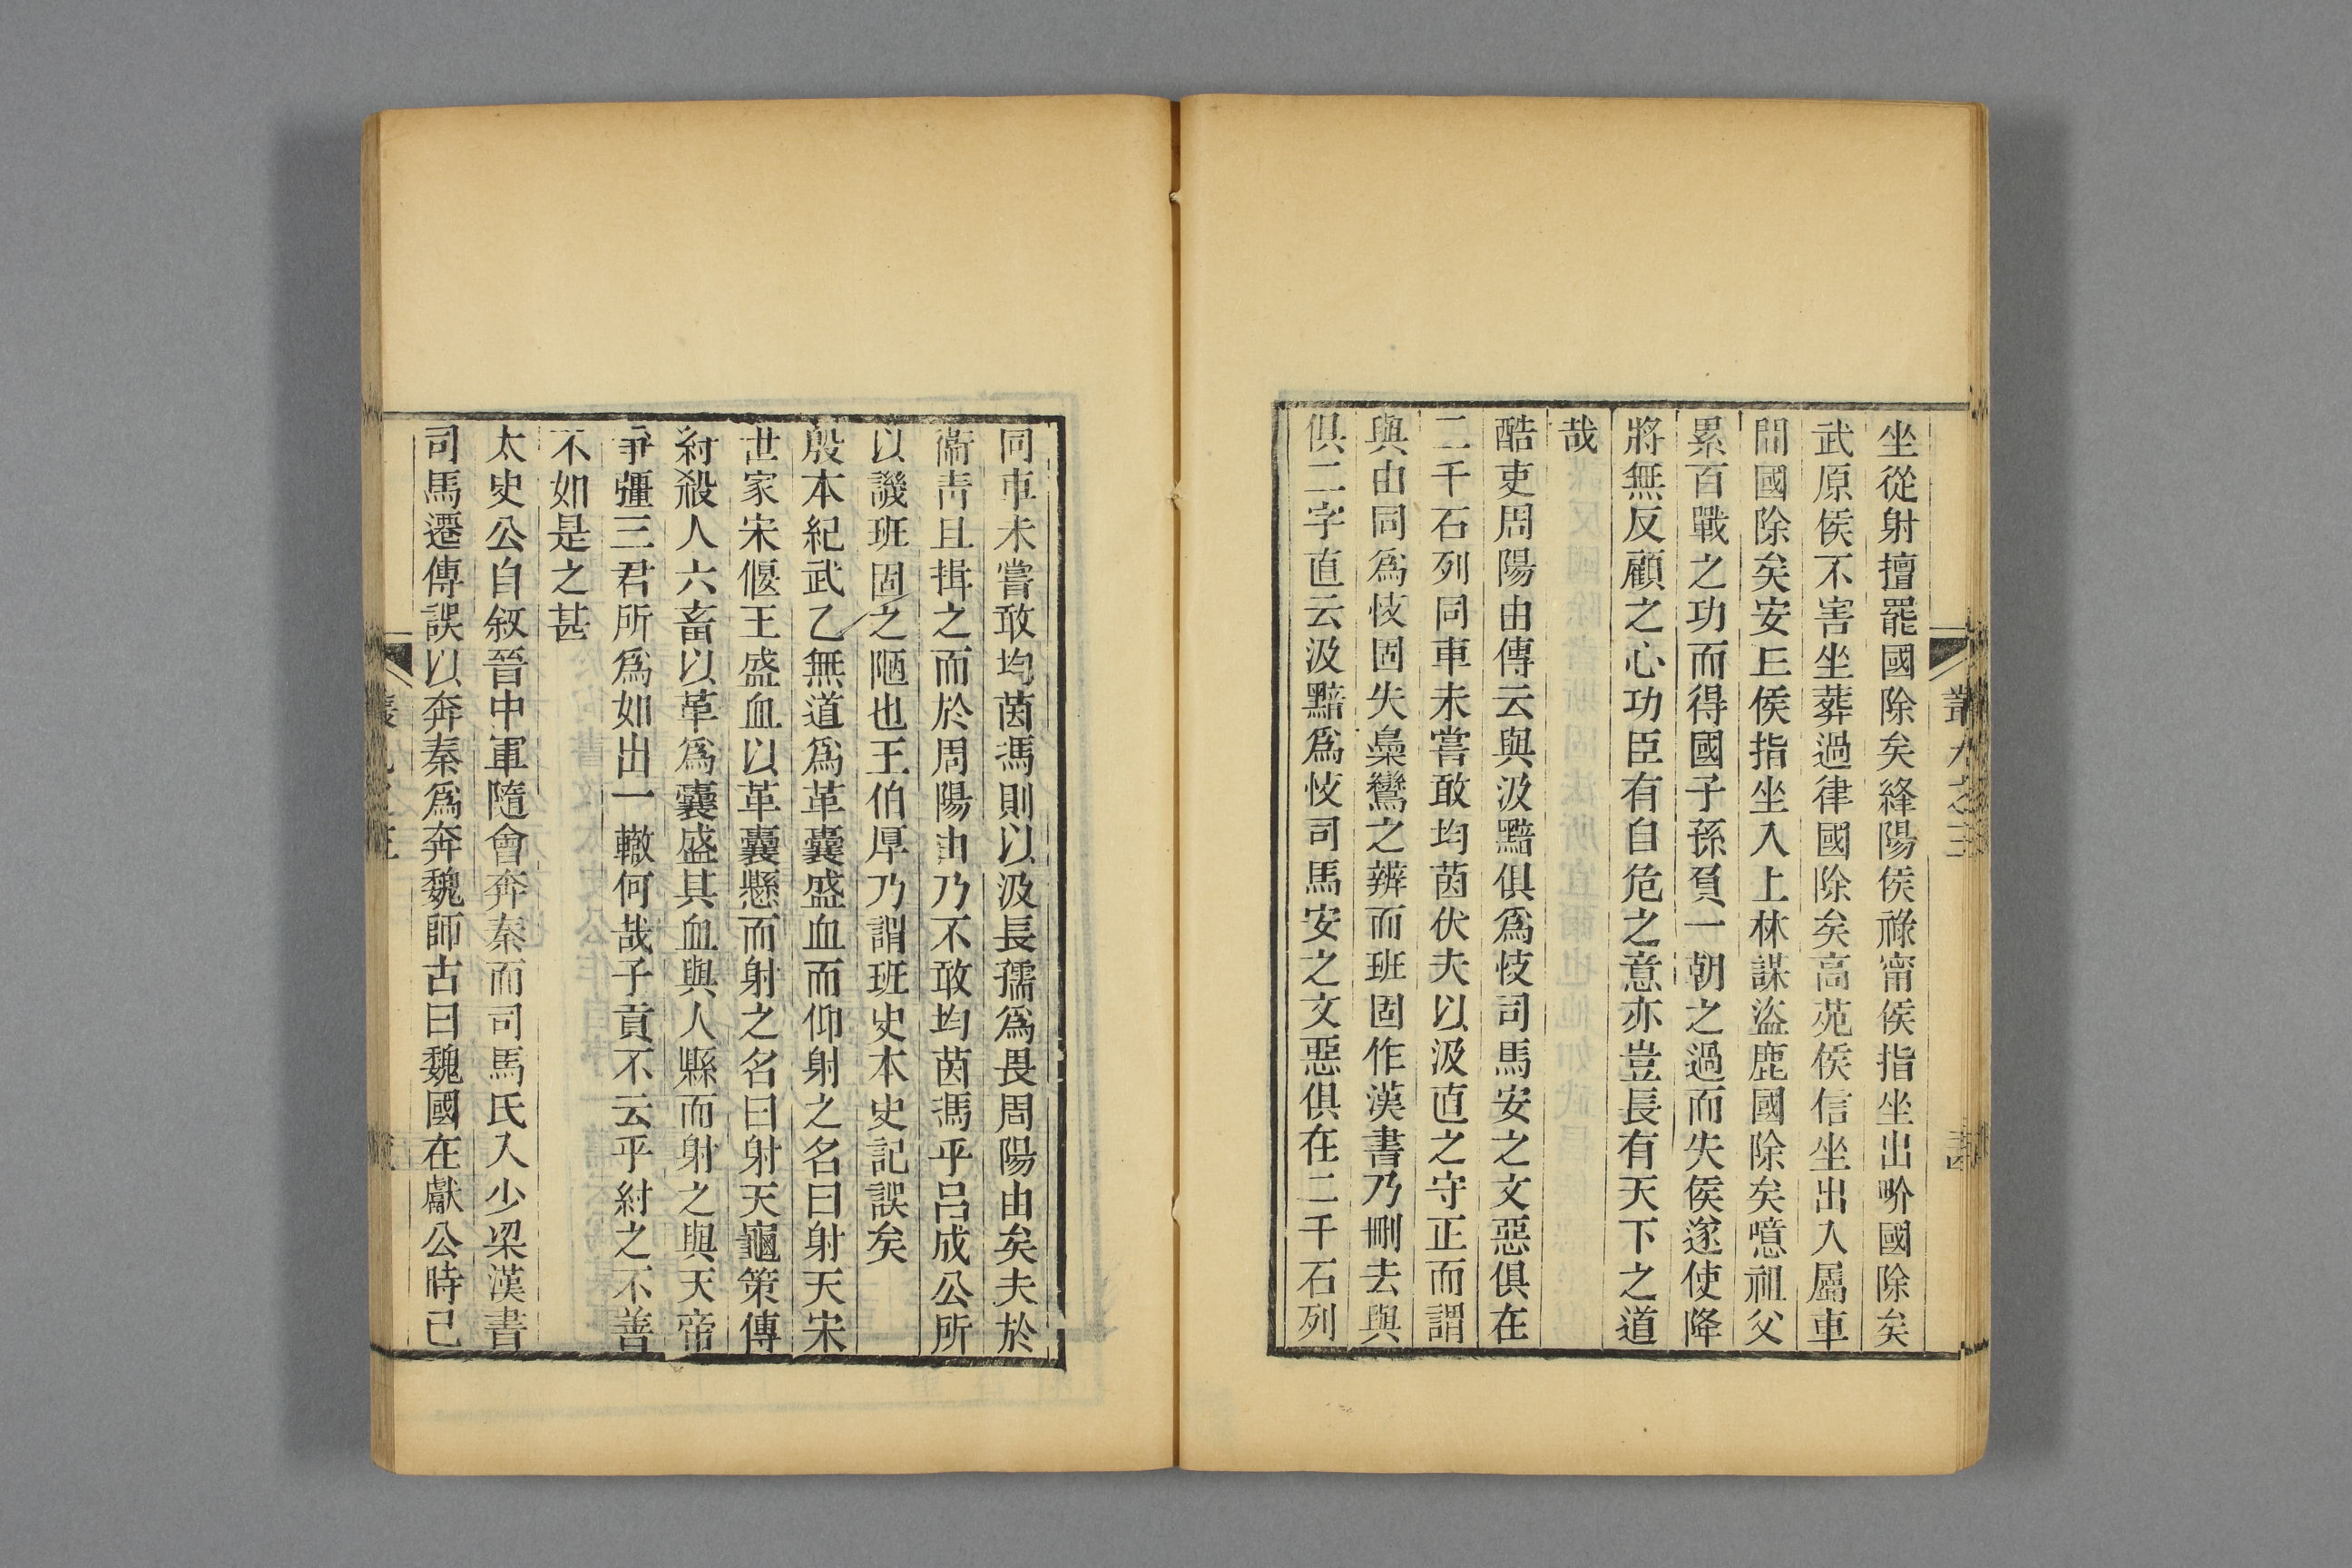 坐從射擅罷國除矣絳陽侯祿甯侯指坐出界國除矣
武原侯不害坐葬過律國除矣高苑侯信坐出入屬車
間國除矣安丘侯指坐入上林謀盜鹿國除矣噫祖父
累百戰之功而得國子孫負一朝之過而失侯遂使降
將無反顧之心功臣有自危之意亦豈長有天下之道
哉
酷吏周陽由傳云與汲黯俱爲忮司馬安之文惡俱在
二千石列同車未嘗敢均茵伏夫以汲直之守正而謂
與由同爲忮固失梟鸞之辨而班固作漢書乃刪去與
俱二字直云汲黯爲忮司馬安之文惡俱在二千石列
同車未嘗敢均茵馮則以汲長孺爲畏周陽由矣夫於
衞青且揖之而於周陽由乃不敢均茵馮乎呂成公所
以譏班固之陋也王伯厚乃謂班史本史記誤矣
殷本紀武乙無道爲革囊盛血而仰射之名曰射天宋
世家宋偃王盛血以革囊懸而射之名曰射天龜策傳
紂殺人六畜以革爲囊盛其血與人縣而射之與天帝
爭彊三君所爲如出一轍何哉子貢不云乎紂之不善
不如是之甚
太史公自叙晉中軍隨會奔秦而司馬氏入少梁漢書
司馬遷傳誤以奔秦爲奔魏師古曰魏國在獻公時已